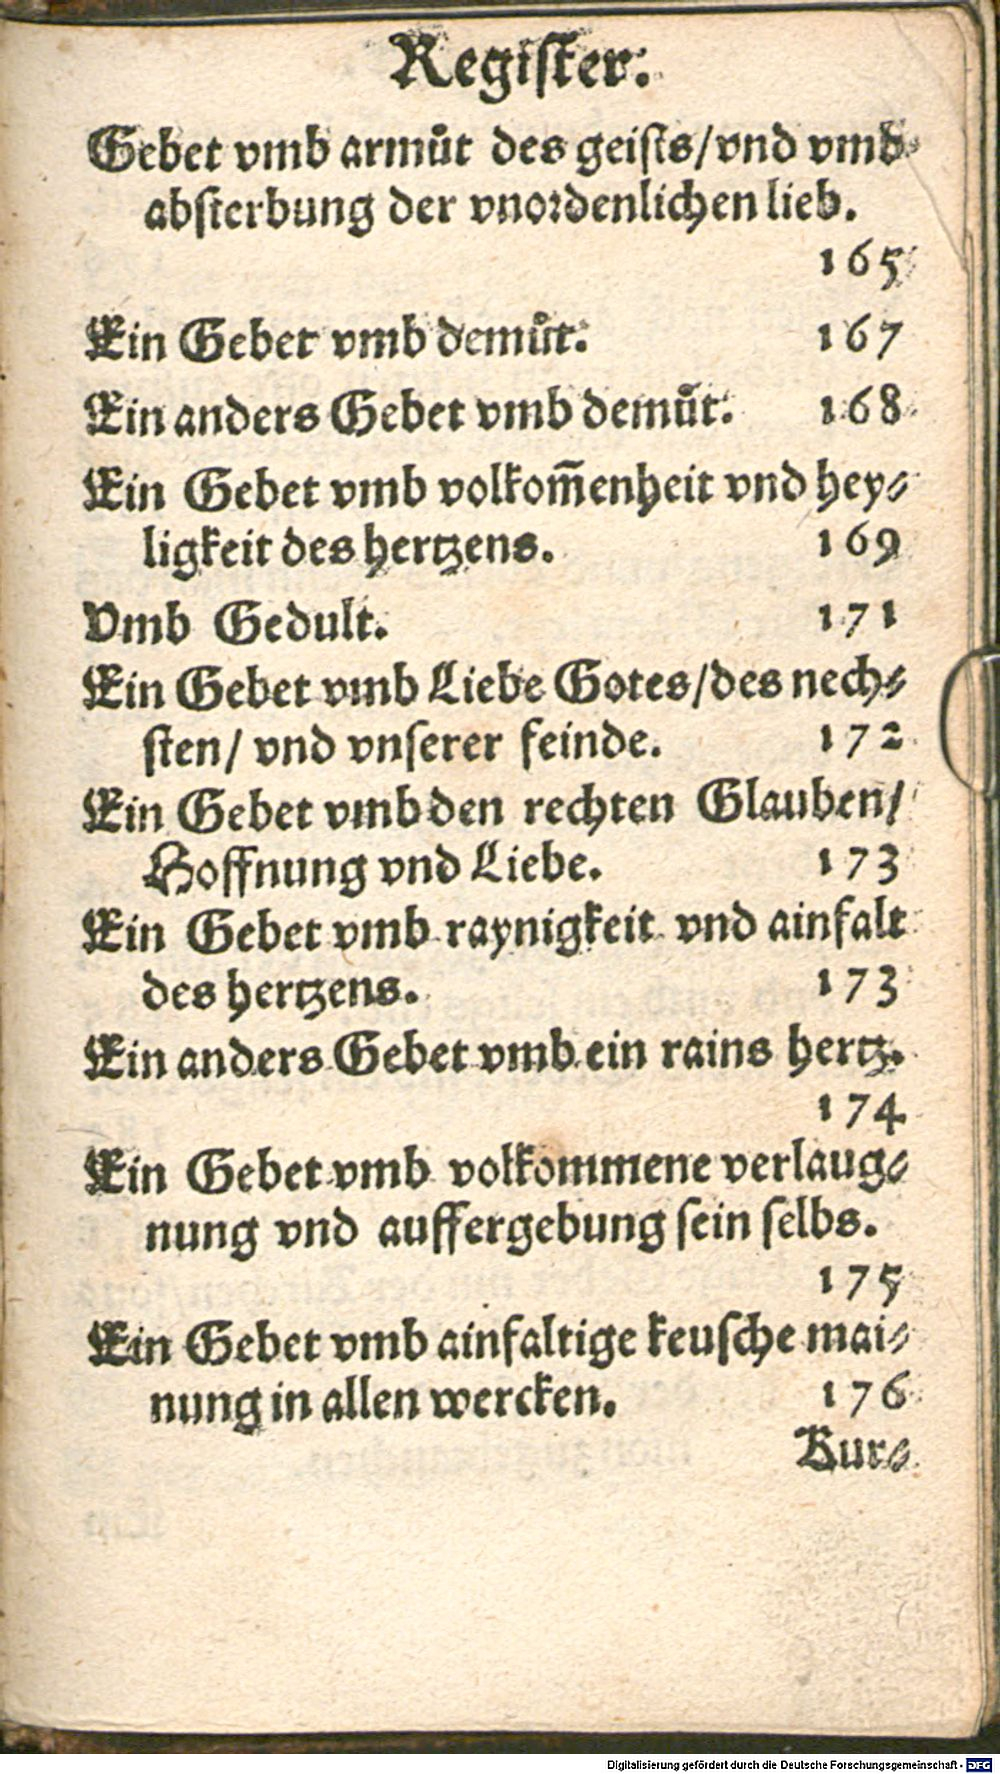 Regiſter.
Gebet vmb armůt des geiſts/vnd vmb
abſterbung der vnordenlichen lieb.
165
Ein Gebet vmb demůt. 167
Ein anders Gebet vmb demůt. 168
Ein Gebet vmb volkom̄enheit vnd hey⸗
ligkeit des hertzens. 169
Vmb Gedult. 171
Ein Gebet vmb Liebe Gotes/des nech⸗
ſten/ vnd vnſerer feinde. 172
Ein Gebet vmb den rechten Glauben/
Hoffnung vnd Liebe. 173
Ein Gebet vmb raynigkeit vnd ainfalt
des hertzens. 173
Ein anders Gebet vmb ein rains hertz.
174
Ein Gebet vmb volkommene verlaug⸗
nung vnd auffergebung ſein ſelbs.
175
Ein Gebet vmb ainfaltige keuſche mai⸗
nung in allen wercken. 176
Kur⸗
Digitalisierung gefördert durch die Deutsche Forschungsgemeinschaft - DFG